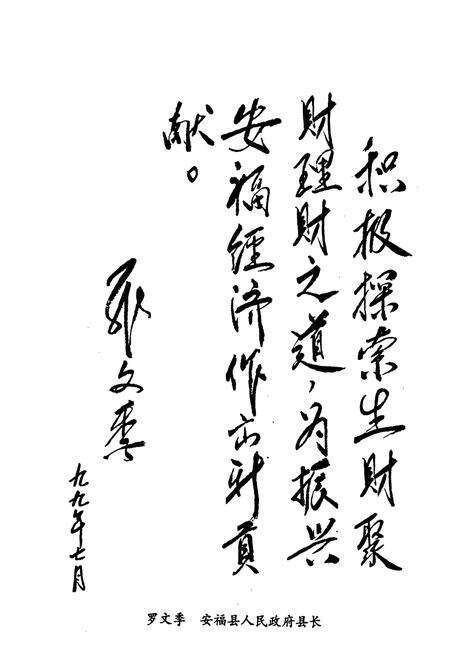 积极探索生财聚
财理财之道，为振兴
安福经济作出新贡
献。
罗文季
九九年七月
罗文季 安福县人民政府县长